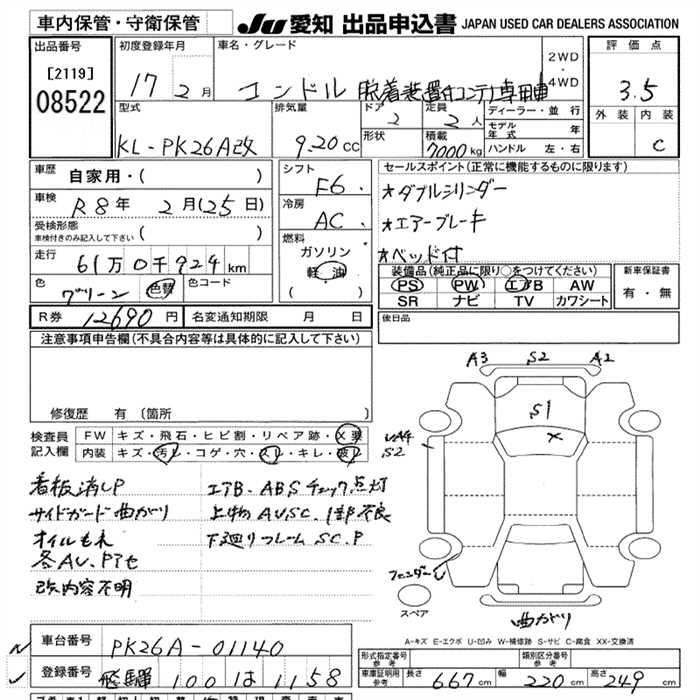 車内保管・守衛保管
JU 愛知 出品申込書 JAPAN USED CAR DEALERS ASSOCIATION
出品番号
[2119]
08522
初度登録年月
17年 2月
車名・グレード
コンドル 脱着装置付コンテナ専用車
2WD
4WD
評価点
3.5
外装 内装
C
型式
KL-PK26A改
排気量
920cc
ドア
2
定員
2人
形状
積載
7000kg
ディーラー・並行
モデル年式 年
ハンドル 左・右
車歴
自家用・( )
車検
R8年 2月(25日)
受検形態
車検付きのみ記入して下さい ( )
走行
61万0千924km
色
グリーン 色替
色コード
シフト
F6
冷房
AC
燃料
ガソリン
軽・油
( )
セールスポイント(正常に機能するものに限ります)
*ダブルシリンダー
*エアーブレーキ
*ベッド付
装備品(純正品に限り○をつけてください)
PS PW エアB AW
SR ナビ TV カワシート
新車保証書
有・無
R券 12690円
名変通知期限 月 日
後日品
注意事項申告欄(不具合内容等は具体的に記入して下さい)
修復歴 有(箇所
検査員
記入欄
FW キズ・飛石・ヒビ割・リペア跡・X要
内装 キズ・汚レ・コゲ・穴・スレ・キレ・破レ
看板消しP
サイドガード曲がり
オイルもれ
各AU、Pアセ
改内容不明
エアB、ABSチェック点灯
上物AUSC、1部不良
下廻りフレームSC、P
A3 S2 A2
S1
X
UA4
S2
フェンダーU
スペア
曲がり
A-キズ E-エクボ U-凹み W-補修跡 S-サビ C-腐食 XX-交換済
車台番号
PK26A-01140
登録番号
飛騨 100 は 1158
形式指定番号
参考
類別区分番号
参考
車庫証明用
参考
長さ 667cm
幅 220cm
高さ 249cm